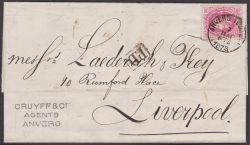 Messrs. Laederich & Frey
40 Rumford Place
Liverpool.
CRUYFF & Cº
AGENTS
ANVERS